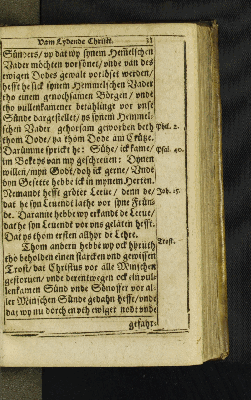 Vam Lydende Christi. 31
Sünders / up dat wy synem Hemelschen
Vader möchten vorsönet / unde van des
ewigen Dodes gewalt vorlöset werden /
hefft he sick synem Hemmelschen Vader
tho einem genochsamen Börgen / unde
tho vullenkamener betahlinge vor unse
Sünde dargestellet / ys synem Hemmel-
schen Vader gehorsam geworden beth
thom Dode / ja thom Dode am Crütze.
Phil. 2.
Darümme sprickt he: Sühe / ick kame /
Psal. 40.
im Boke ys van my geschreven: Dynen
willen / myn Godt / doh ick gerne / Unde
dyn Gesette hebbe ick in mynem Herten.
Nemandt hefft gröter Leeue / denn de /
Joh. 15.
dat he syn Leuendt lathe vor syne Fründ
de. Daranne hebbe wy erkandt de Leeue /
dat he syn Leuendt vor uns gelaten hefft.
Dat ys thom ersten allhyr de Lehre.
Thom andern hebbe wy ock hyruth
Trost.
tho beholden einen starcken und gewissen
Trost / dat Christus vor alle Minschen
gestoruen / unde derentwegen ock ein vul-
lenkamen Sünd unde Sönoffer vor al-
ler Minschen Sünde gedahn hefft / unde
dat wy nu dorch en uth ewiger nodt unde
gefahr: